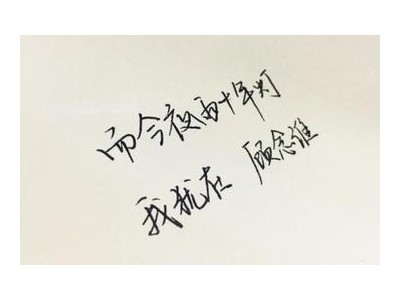 而今夜雨十年灯
我犹在 顾念谁